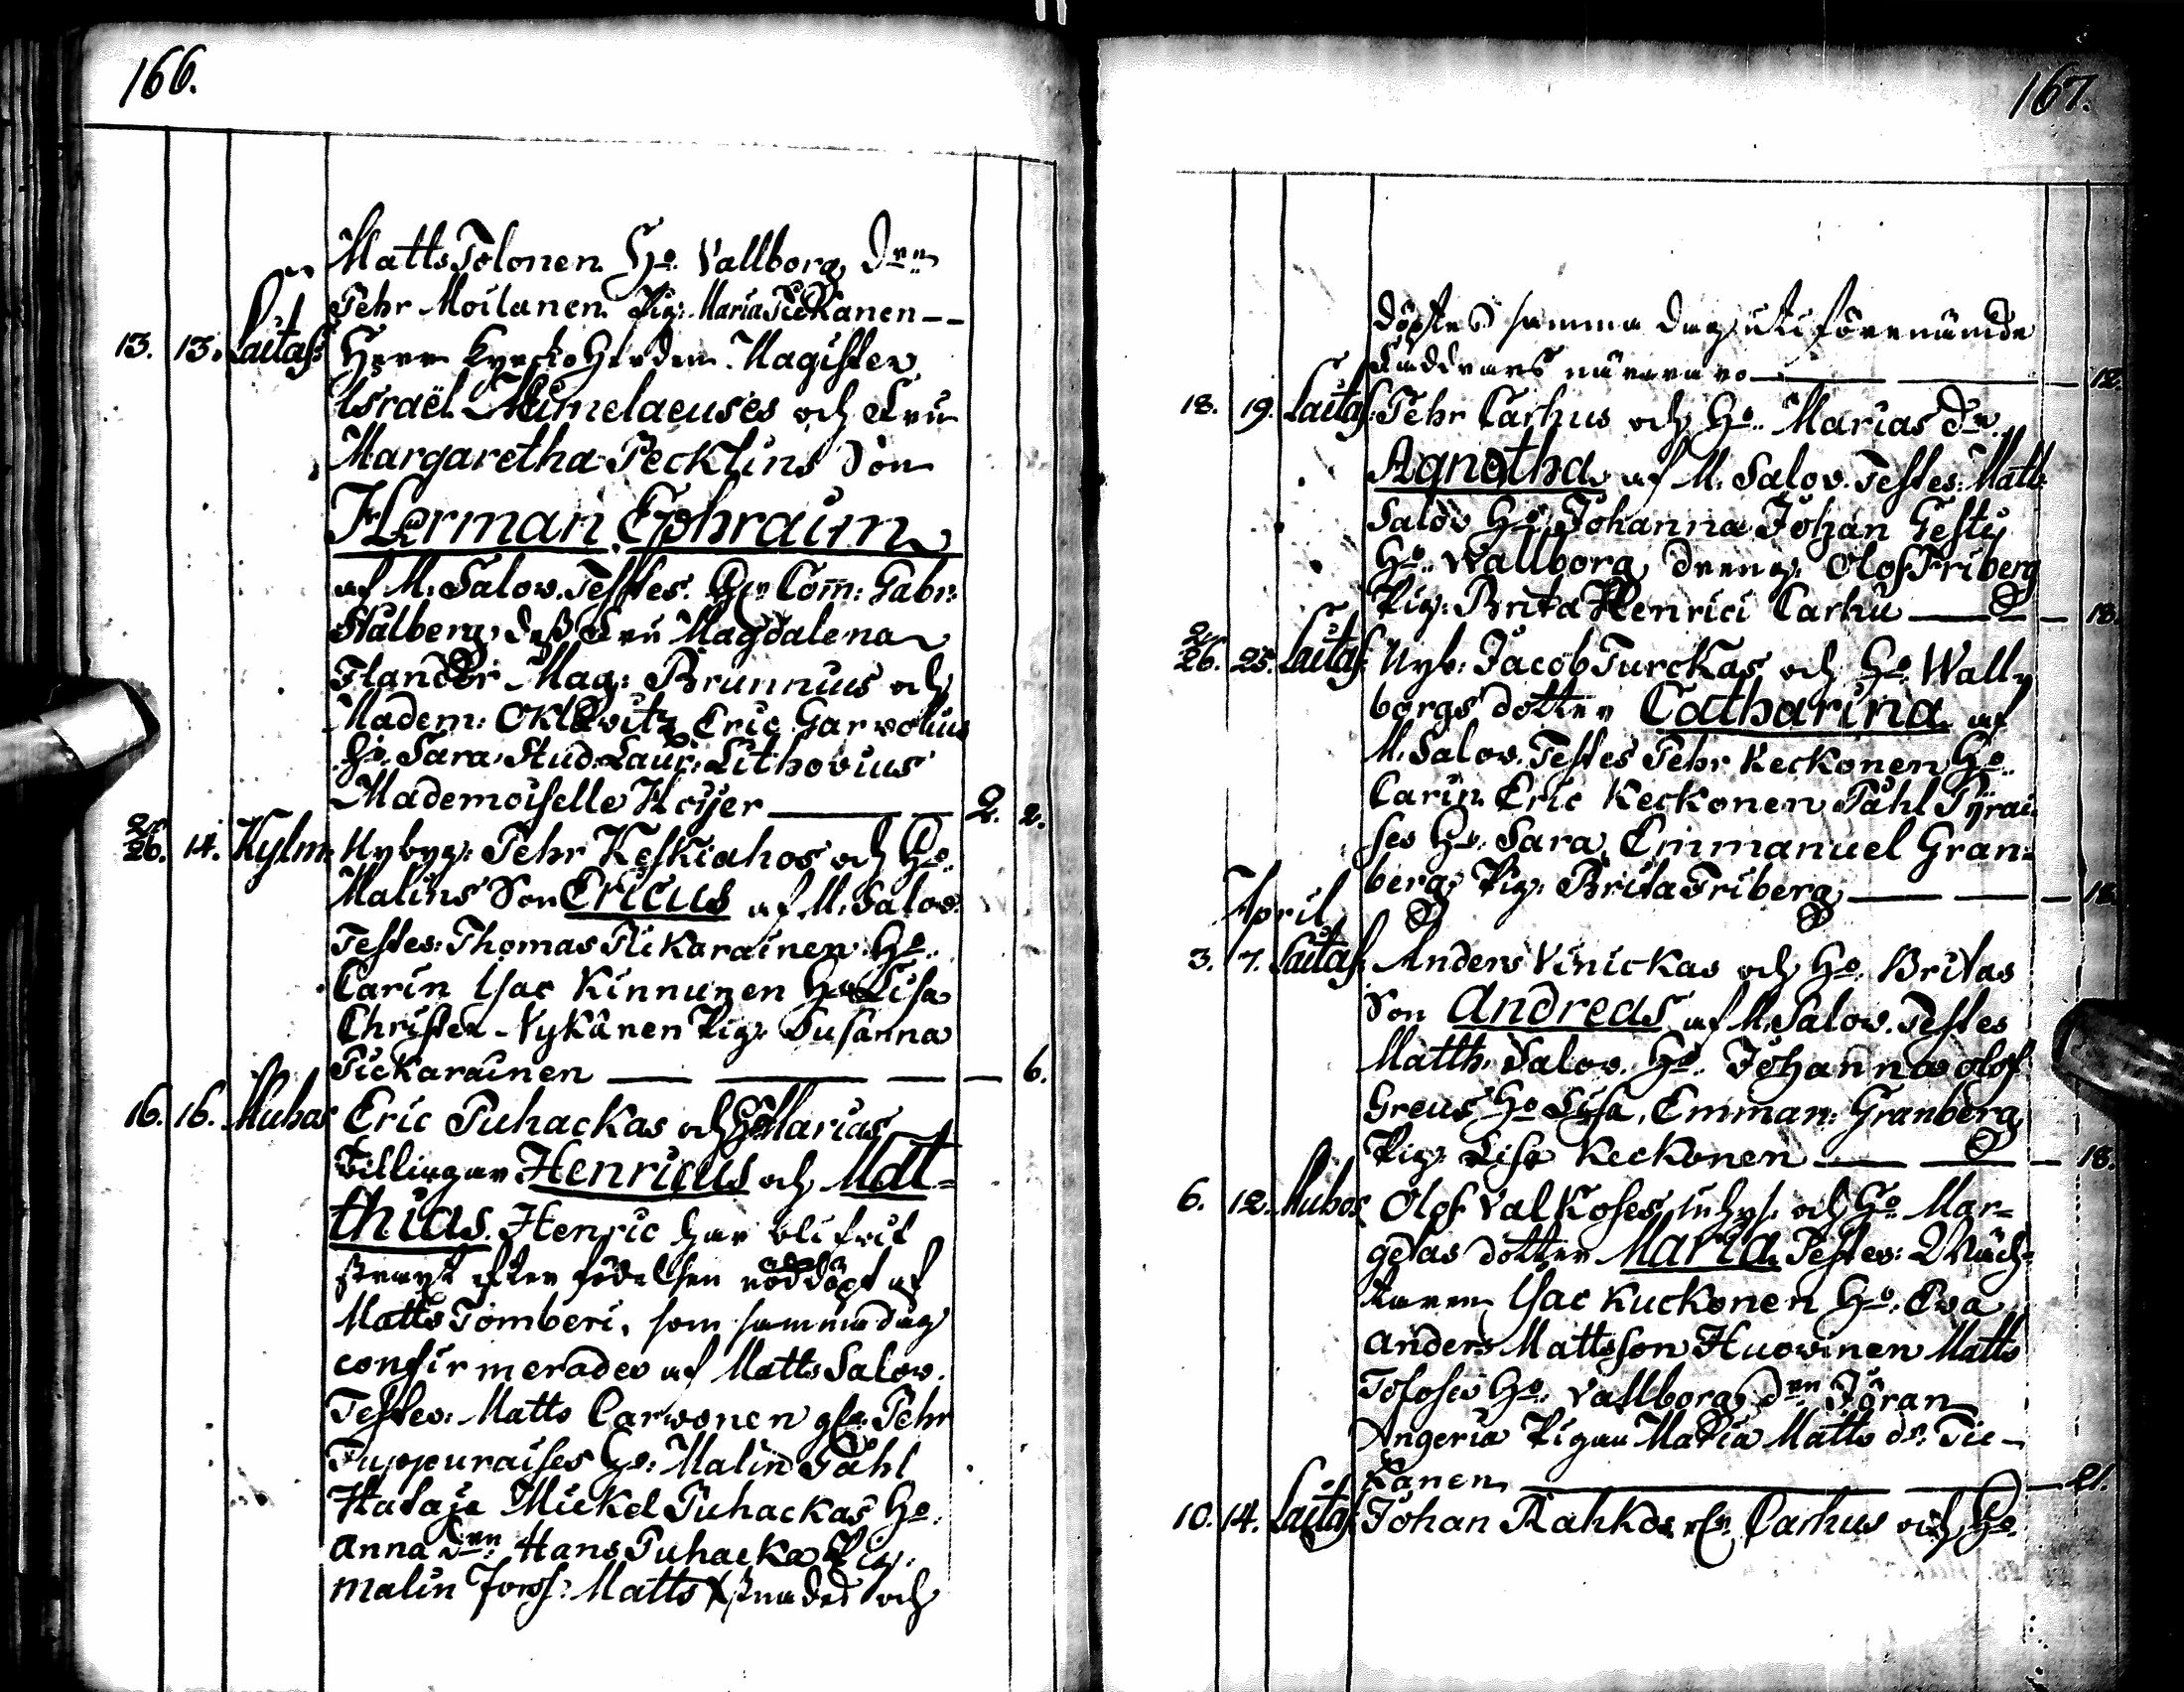 166.
Matts Tolonen. Ho. Vallborg, Dren
Pehr Moilanen. Pig: Maria Tickanen --
13. 13. Laitas: Herr Kyrcko Herden Magister
Israël Mumelaeuses och Fru
Margaretha Pecklins Son
Herman Ephraim
af M. Salov. Testes. Hr Com̄: Gabr:
Stålberg, deß Fru Magdalena
Flander Mag: Brunnius och
Madem: Eric Garvolius
Ho. Sara, Stud: Laur: Lithovius
Mademoiselle Hoijer — 2. 2.
26. 14. Kylm: Nybyg: Pehr Keskiahos och Ho.
Malins Son Ericus af M. Salov.
Testes: Thomas Pikarainen Ho.
Carin Isac Kinnunen Ho Lisa
Christer Nykänen Pig: Susanna
Pickarainen — 6.
16. 16. Muhos Eric Puhackas och Ho Marias
Tvillingar Henricus och Mat=
thias. Henric har blifwit
straxt efter födelsen nöddöpt af
Matts Tomberi, som samma dag
confirmerades af Matts Salov.
Testes: Matts Carvonen Pehr
Tuppuraises Ho: Malin Påhl
Hataja Mickel Puhackas Ho.
Anna Dren: Hans Puhacka Pig.
Malin Forss: Matts och
167.
döptes samma dag uti förenämde
Faddrars närvaro — 12.
18. 19. Laitas: Pehr Carhus och Ho. Marias Dr.
Agnetha af M. Salov. Testes: Matt:
Salov Ho. Johanna Johan Gesty
Ho. Wallborg, Dreng: Olof Friberg
Pig: Brita Henrici Carhu — 18.
26. 25. Laitas: Nyb: Jacob Turckas och Ho. Wall=
borgs dotter Catharina af
M. Salov. Testes Pehr Keckonen Ho.
Carin Eric Keckonen Påhl Pyrai=
ses Ho. Sara, Emmanuel Gran=
berg, Pig: Brita Friberg — 18.
April
3. 7. Laitas: Anders Vinickas och Ho. Britas
Son Andreas af M. Salov. Testes
Matth: Salov. Ho. Johanna Olof
Greus Ho Lisa, Emman: Granberg
Pig: Lisa Keckonen — 18.
6. 12. Muhos Olof Valkoses Inhys: och Ho. Mar=
getas dotter Maria Testes: Wäch=
taren Isac Kuckonen Ho. Eva
Anders Mattsson Huovinen Matts
Toloses Ho. Vallborg, Dren Jöran
Angeria Pigan Maria Matts dr. Tic-
kanen — 21.
10. 14. Laitas: Johan Rahkos Carhus och Ho.